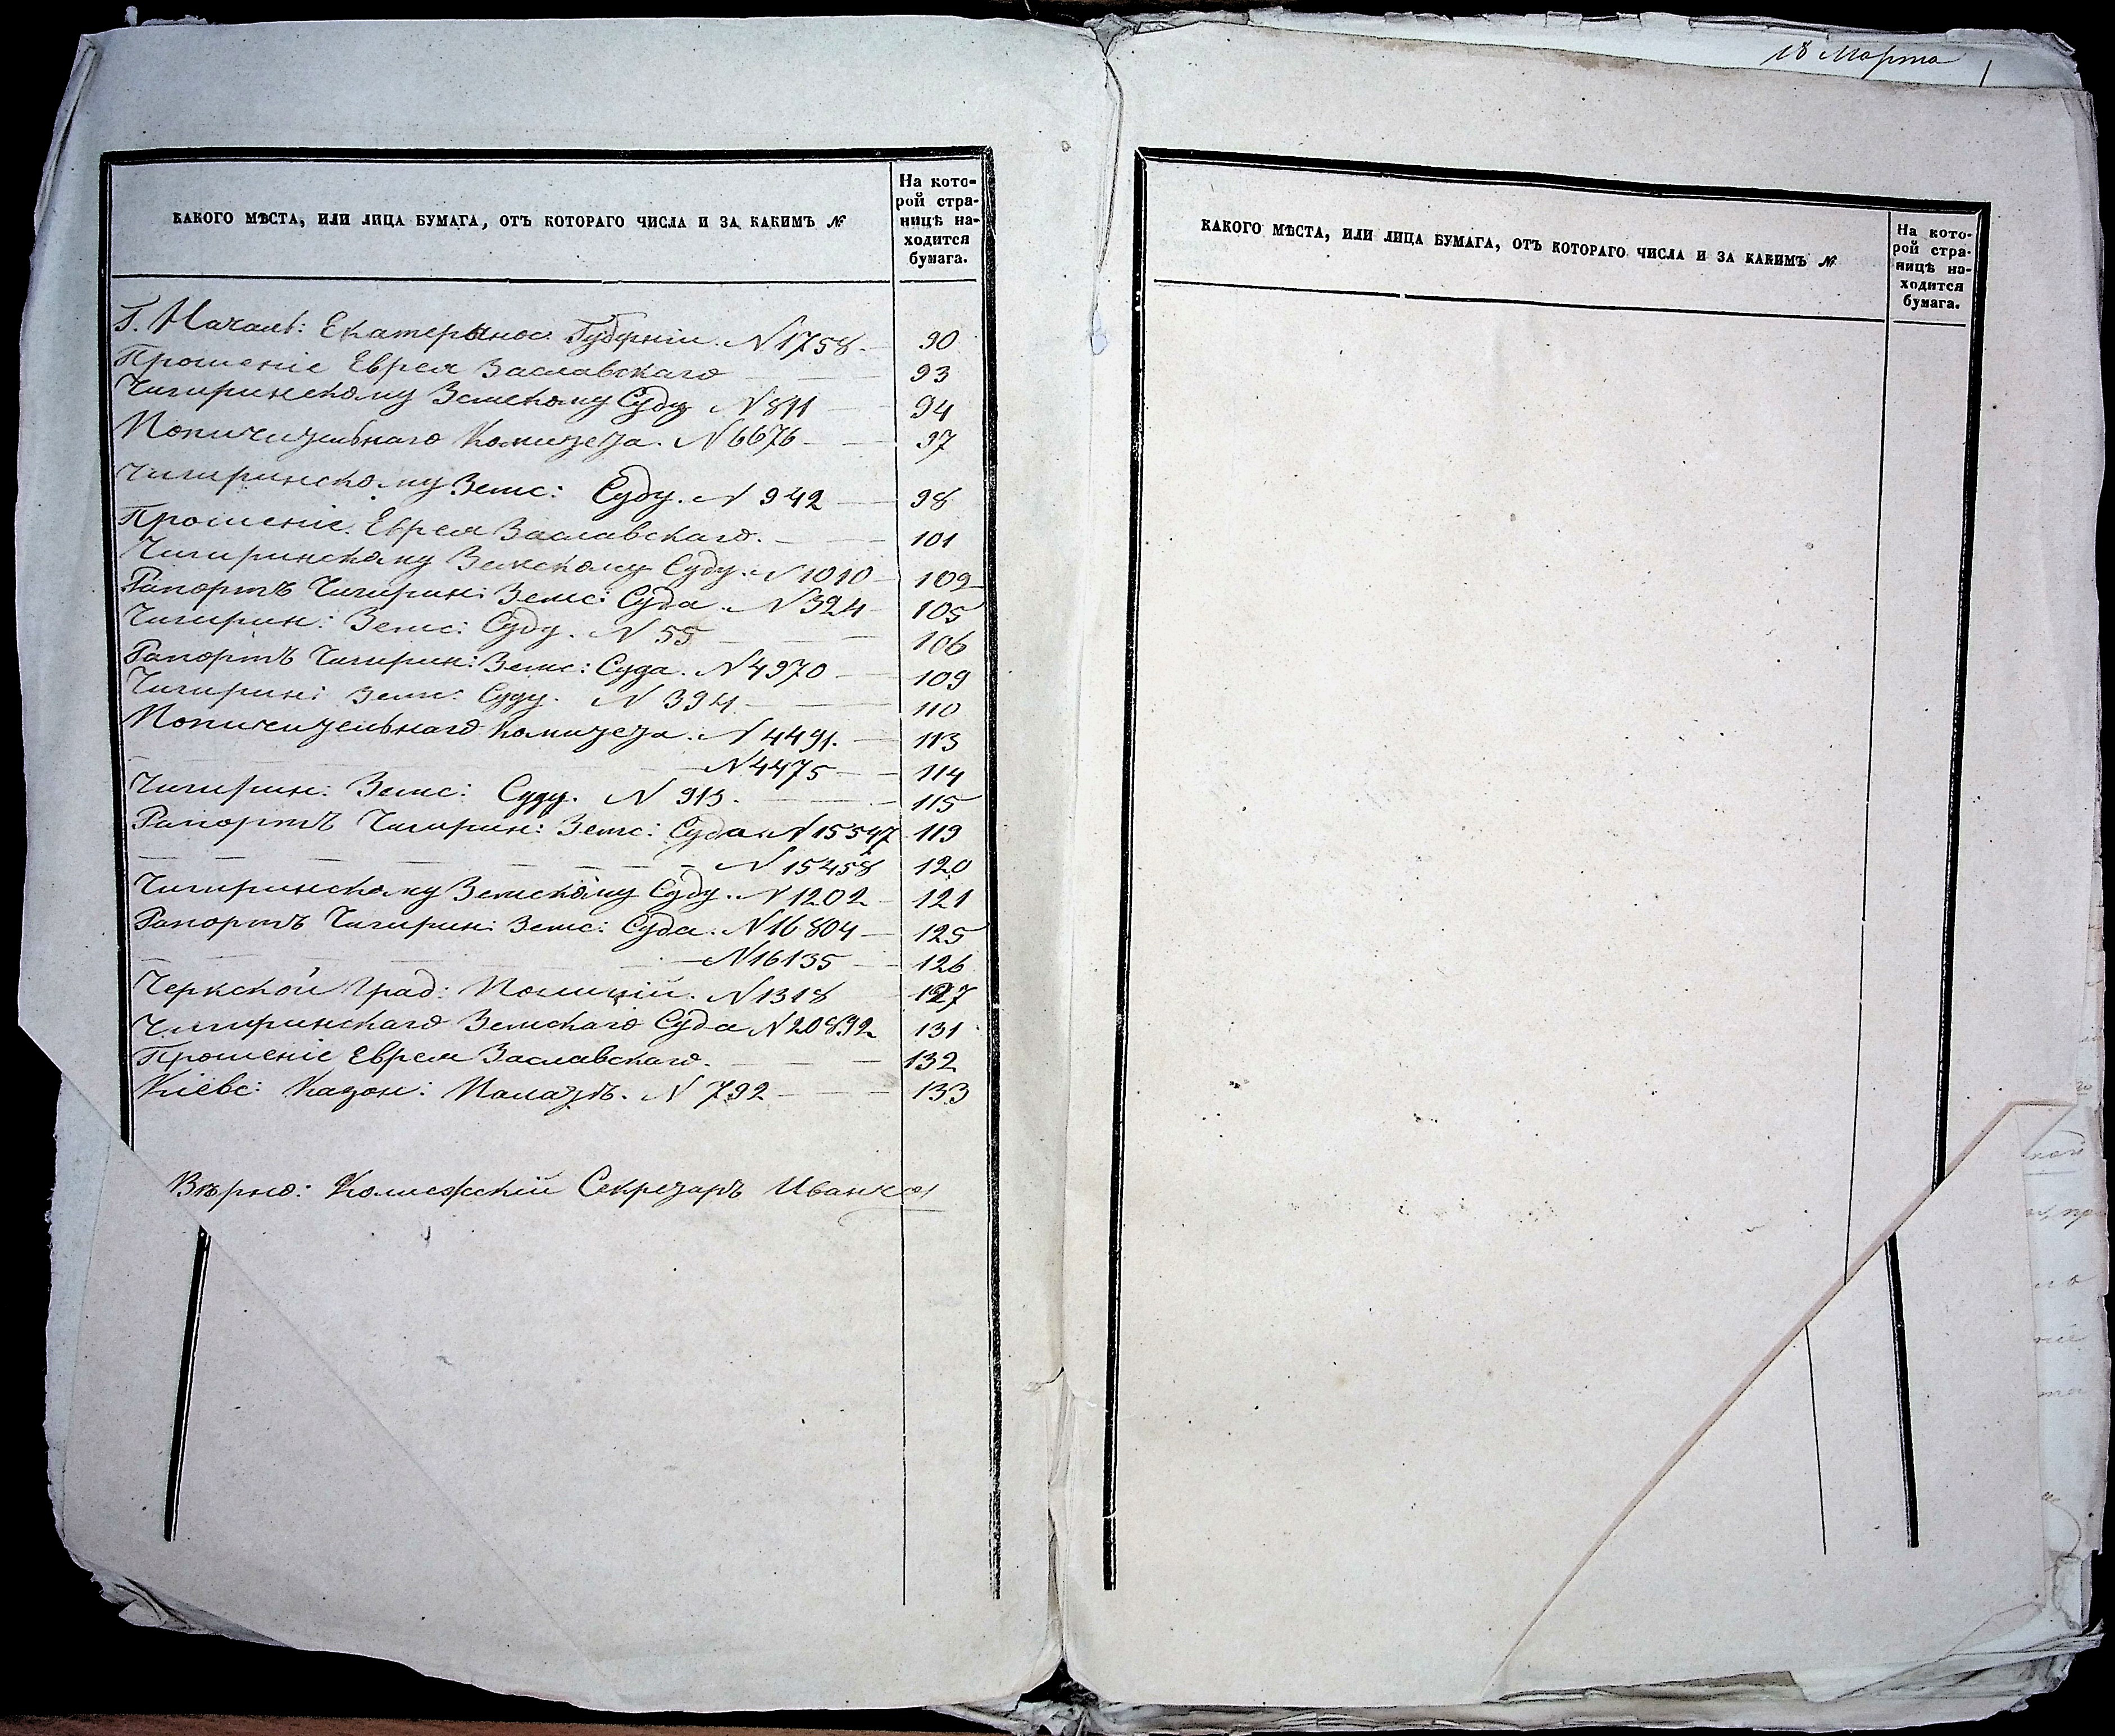 КАКОГО МѢСТА, ИЛИ ЛИЦА БУМАГА, ОТЪ КОТОРАГО ЧИСЛА И ЗА КАКИМЪ №
На кото-
рой стра-
ницѣ на-
ходится
бумага.
Г. Начал: Екатерынос. Губерніи. N 1758. 90
Прошеніе Еврея Заславскаго 93
Чигиринскому Земскому Суду N 811 94
Попичительнаго Комитета. N 6676 97
ЧигиринскомуЗемс: Суду. N 942 98
Прошеніе Еврея Заславскаго. 101
Чигиринскому Земскому Суду. N 1010 102
Рапортъ Чигирин: Земс: Суда. N 324 105
Чигирин: Земс: Суду. N 55 106
Рапортъ Чигирин: Земс: Суда. N 4970 109
Чигирин: Земс: Суду. N 394 110
Попичительнаго Комитета. N 4491. 113
N 4475 114
Чигирин: Земс: Суду. N 913. 115
Рапортъ Чигирин: Земс: Суда N 15347 119
N 15458 120
Чигиринскому Земскому Суду. N 1202 121
Рапортъ Чигирин: Земс: Суда. N 16804 125
N 16135 126
Черкской Град: Полиціи. N 1318 127
Чигиринскаго Земскаго Суда N 20832 131
Прошеніе Еврея Заславскаго. 132
Кіевс: Казон: Палатѣ. N 792 133
Вѣрно: Колиежскій Секретарь
18 Марта
1
КАКОГО МѢСТА, ИЛИ ЛИЦА БУМАГА, ОТЪ КОТОРАГО ЧИСЛА И ЗА КАКИМЪ №
На кото-
рой стра-
ницѣ на-
ходится
бумага.